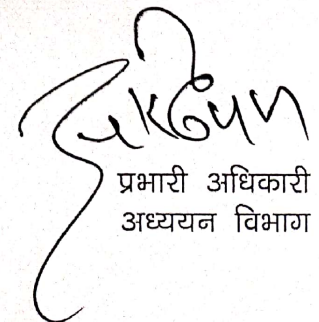 प्रभारी अधिकारी
अध्ययन विभाग